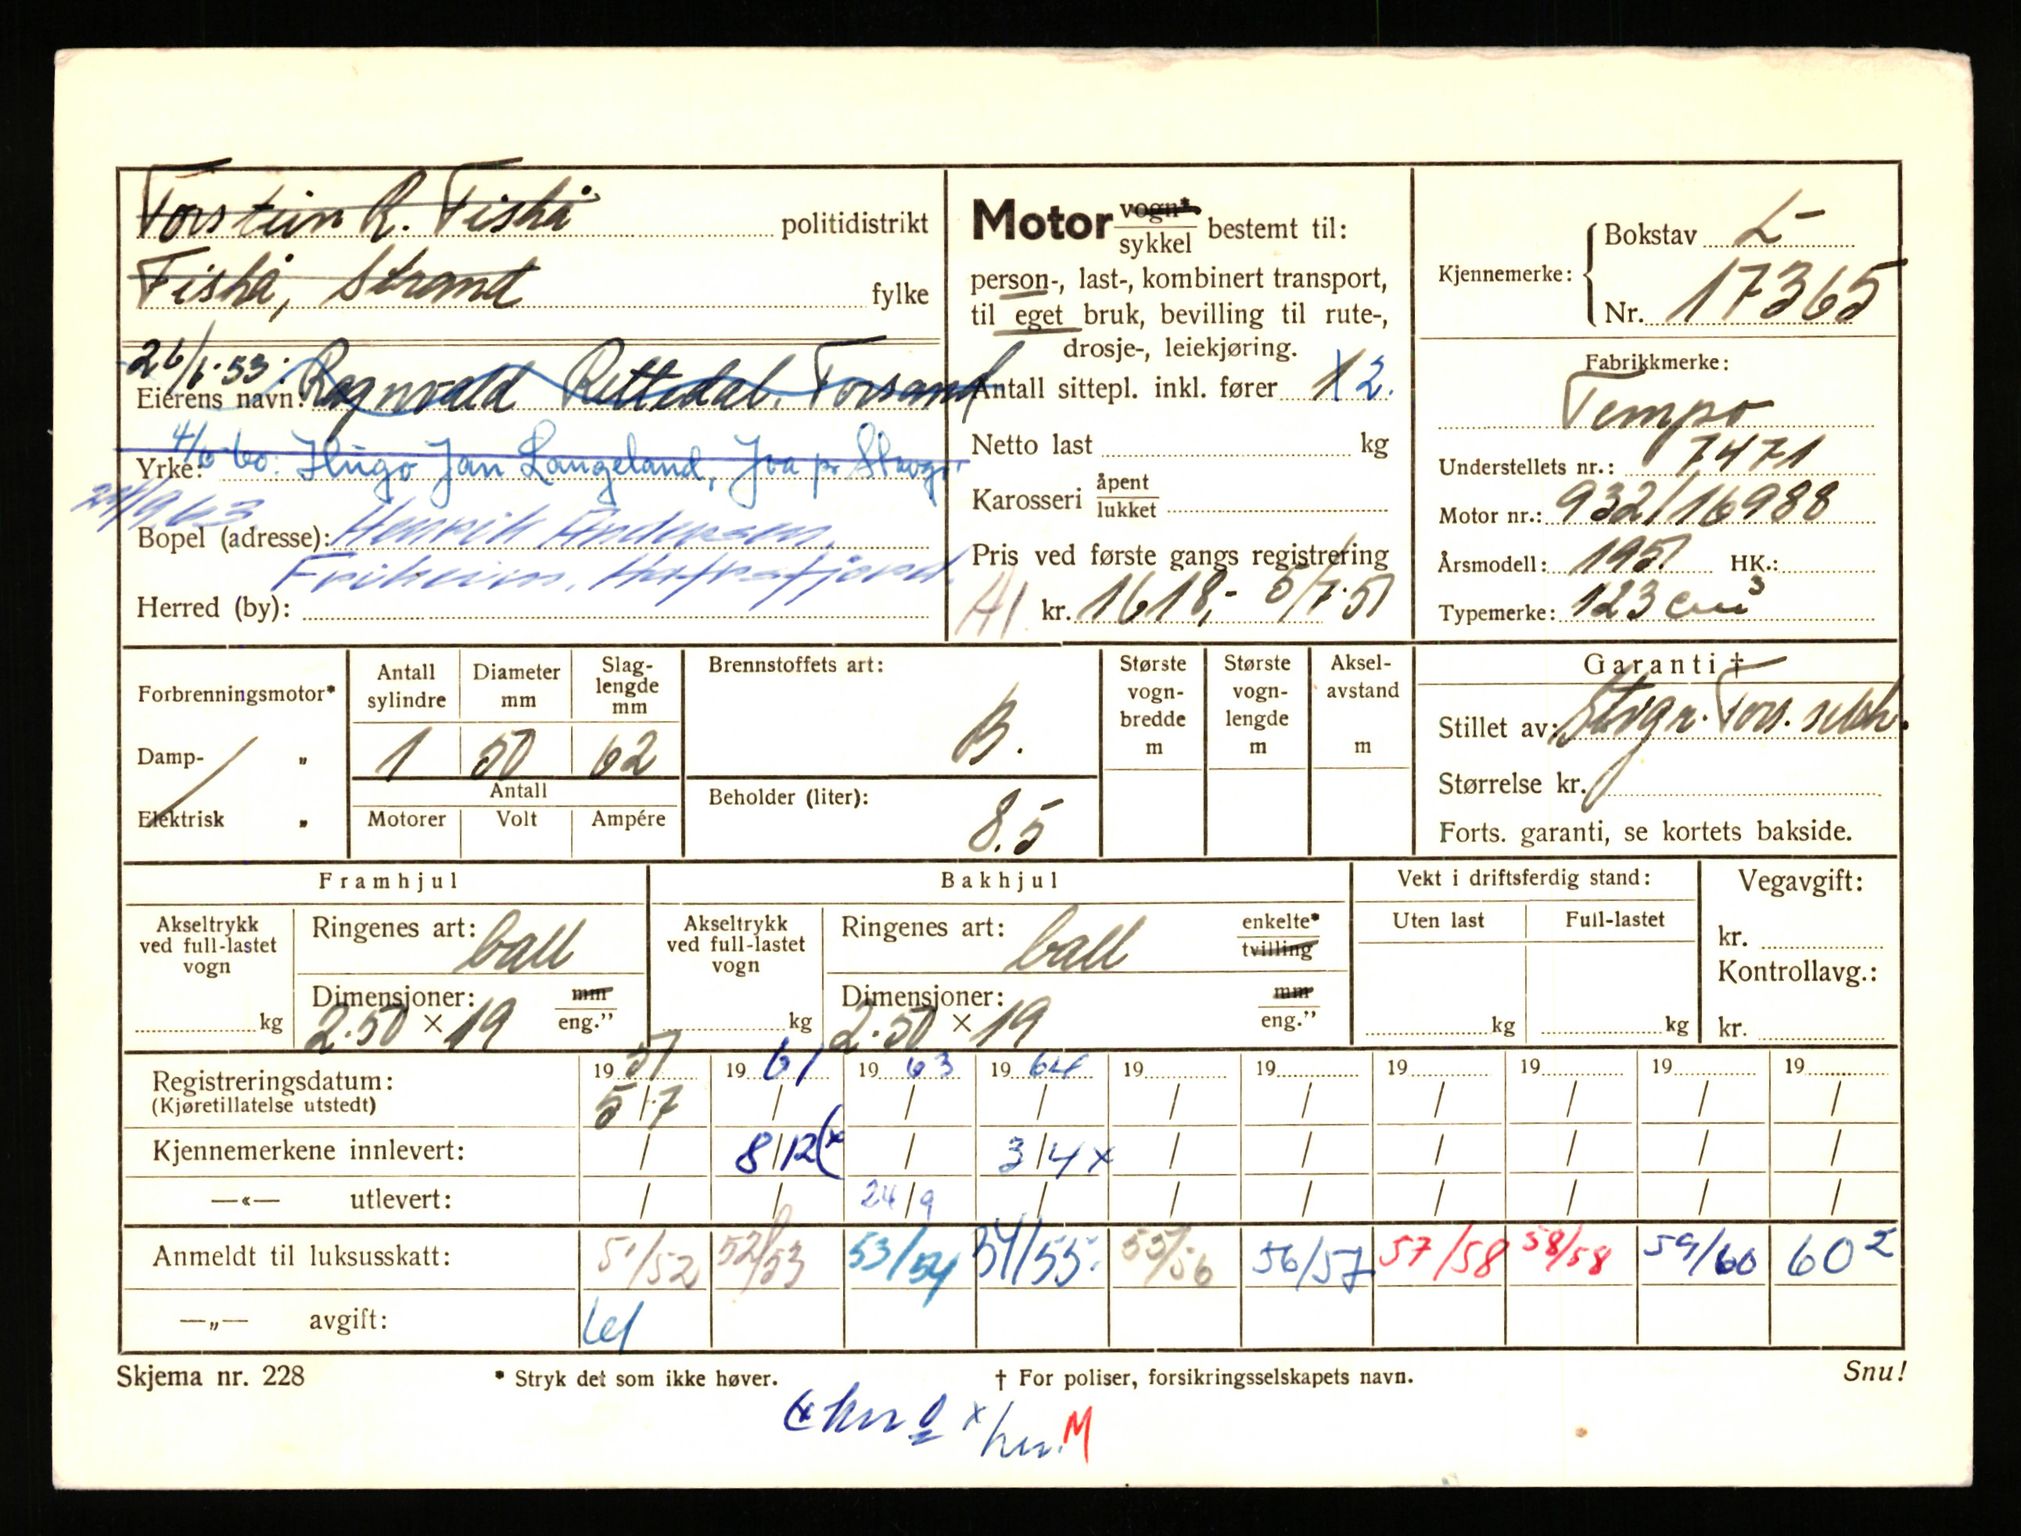 Torstein R. Fiskå politidistrikt
Fiskå, Strand fylke
26/6.53: Eierens navn: Ragnvald Rettedal, Forsand
Yrke: 4/6 60: Hugo Jan Langeland, Joa pr
24/9 63 Bopel (adresse): Henrik Andersen,
Friheim, Hafrsfjord.
Herred (by):
Motor vogn* sykkel bestemt til:
person-, last-, kombinert transport,
til eget bruk, bevilling til rute-,
drosje-, leiekjøring.
Antall sittepl. inkl. fører 1 2.
Netto last kg
Karosseri åpent lukket
Pris ved første gangs registrering
A1 kr. 1618,- 5/7.51
Kjennemerke: Bokstav L-
Nr. 17365
Fabrikkmerke:
Tempo
Understellets nr.: 7471
Motor nr.: 932/16988
Årsmodell: 1951 HK.:
Typemerke: 123 cm³
Forbrenningsmotor*
Damp- „
Elektrisk „
Antall sylindre Diameter mm Slag-lengde mm
1 50 62
Antall
Motorer Volt Ampére
Brennstoffets art:
B.
Beholder (liter):
8.5
Største vogn-bredde m
Største vogn-lengde m
Aksel-avstand m
Garanti †
Stillet av:
Størrelse kr.
Forts. garanti, se kortets bakside.
Framhjul
Akseltrykk ved full-lastet vogn kg
Ringenes art: ball
Dimensjoner: mm
2.50 × 19 eng.”
Bakhjul
Akseltrykk ved full-lastet vogn kg
Ringenes art: ball enkelte* tvilling
Dimensjoner: mm
2.50 × 19 eng.”
Vekt i driftsferdig stand:
Uten last Full-lastet
kg kg
Vegavgift:
kr.
Kontrollavg.:
kr.
19 51 19 61 19 63 19 64 19 19 19 19 19 19
Registreringsdatum: 5/7 / / / / / / / / /
(Kjøretillatelse utstedt)
Kjennemerkene innlevert: / 8/12(x / 3/4x / / / / / /
—«— utlevert: / / 24/9 / / / / / / /
Anmeldt til luksusskatt: 51/52 52/53 53/54 54/55 55/56 56/57 57/58 58/58 59/60 60 2
—„— avgift:
Skjema nr. 228 * Stryk det som ikke høver. † For poliser, forsikringsselskapets navn. Snu!
M